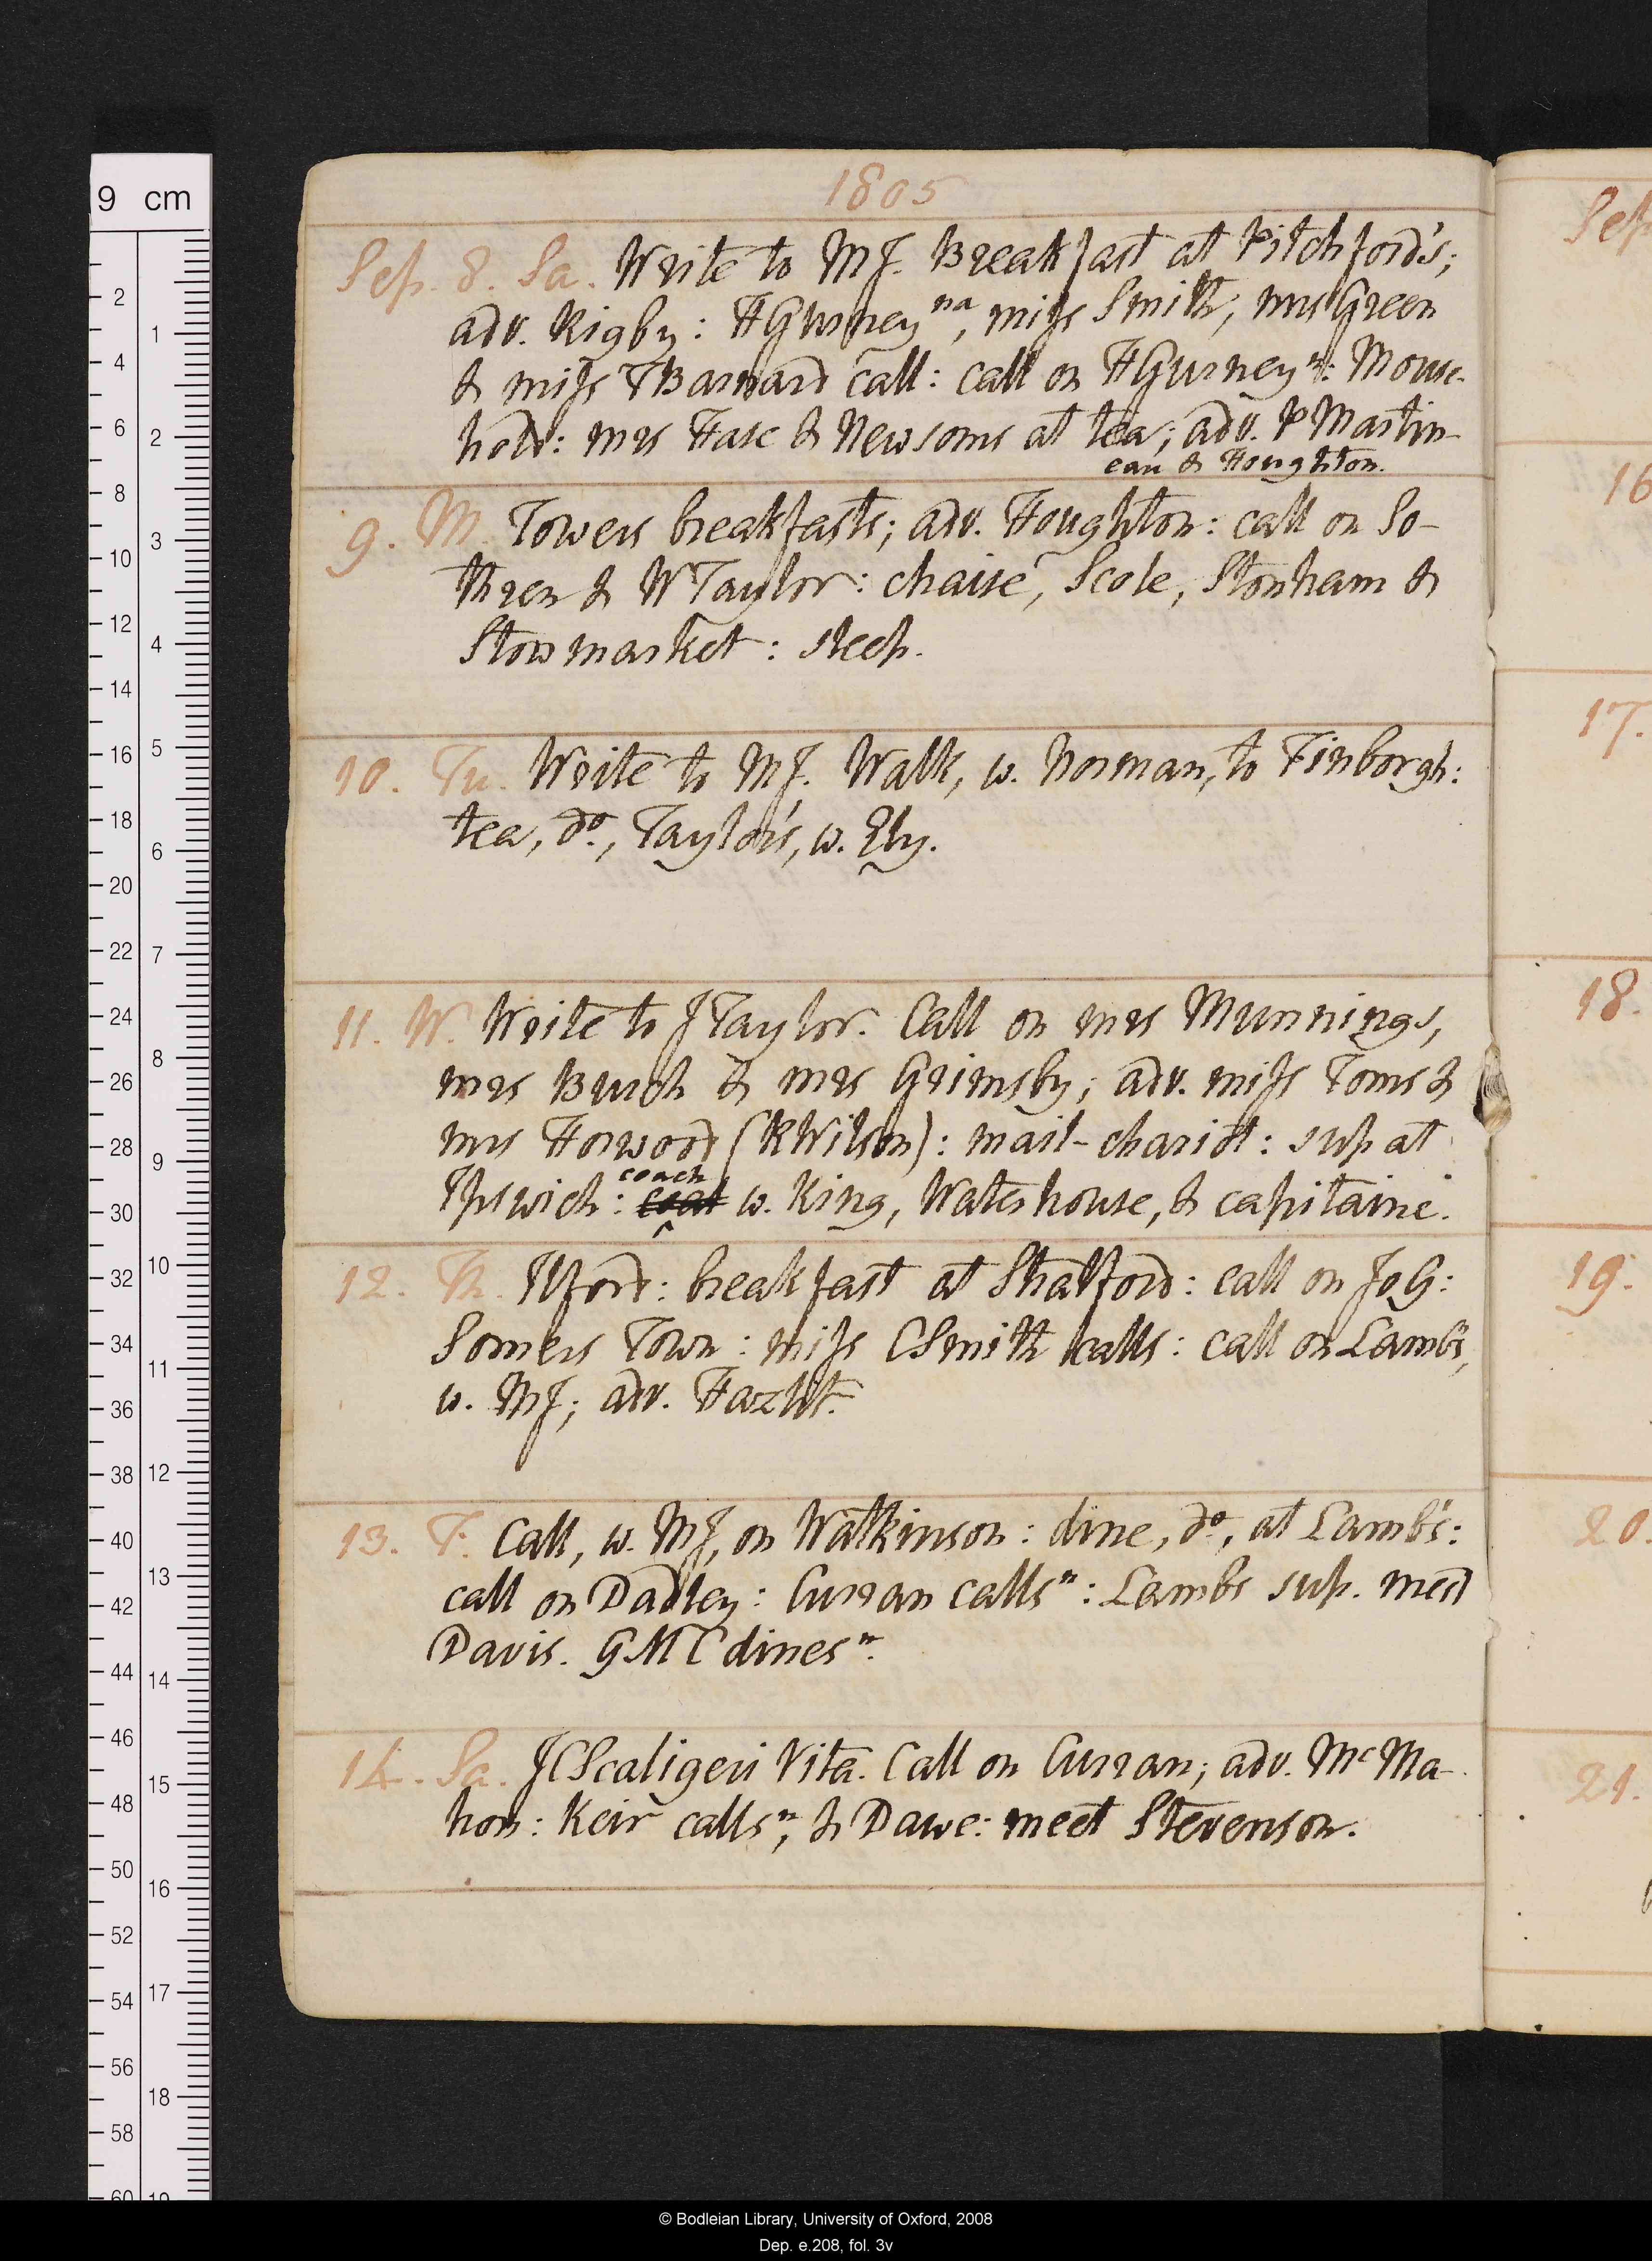 1805
Sep. 8. Sa. Write to MJ. Breakfast at Pitchford's;
adv. Rigby: HGurney na, miss Smith, mrs Green
& miss TBarnard call: call on HGurney n: Mouse-
hold: mrs Hase & Newsoms at tea; adv. P Martin-
eau & Houghton.
9. M. Towers breakfasts; adv. Houghton: call on So-
thren & WTaylor: chaise, Scole, Stonham &
Stowmarket: sleep.
10. Tu. Write to MJ. Walk, w. Norman, to Finborgh:
tea, do., Taylor's, w. Ely.
11. W. Write to JTaylor. Call on mrs Munnings,
mrs Burch & mrs Grimsby; adv. miss Toms &
mrs Horwood (RWilson): mail-chariot: sup at
coach
Ipswich: coat w. King, Waterhouse, & capitaine.
12. Th. Ilford: breakfast at Stratford: call on JoG:
Somers Town: miss CSmith calls: call on Lambs,
w. MJ; adv. Hazlit.
13. F. Call, w. MJ, on Watkinson: dine, do., at Lamb's:
call on Dadley: Curran calls n: Lambs sup. meet
Davis. GMC dines n.
14. Sa. JCScaligeri Vita. Call on Curran; adv. McMa-
hon: Keir calls n, & Dawe: meet Stevenson.
Sep
16
17.
18.
19.
20.
21.
9 cm
2
4
6
8
10
12
14
16
18
20
22
24
26
28
30
32
34
36
38
40
42
44
46
48
50
52
54
56
58
60
1
2
3
4
5
6
7
8
9
10
11
12
13
14
15
16
17
18
19
© Bodleian Library, University of Oxford, 2008
Dep. e.208, fol. 3v